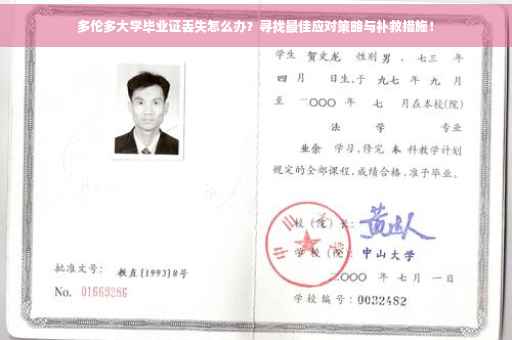 多伦多大学毕业证丢失怎么办？寻找最佳应对策略与补救措施！
学生 贺文龙 性别 男 ，七三 年
四 月 日生，于 九七 年 九 月
至 二〇〇〇 年 七 月在本校(院)
法 学 专业
业余 学习，修完 本 科教学计划
规定的全部课程，成绩合格，准予毕业。
校 (院) 长：
学 校 (院)： 中山大学
二〇〇〇 年 七 月 一 日
学校编号：0032482
批准文号： 教直(1993)8号
No. 01669286